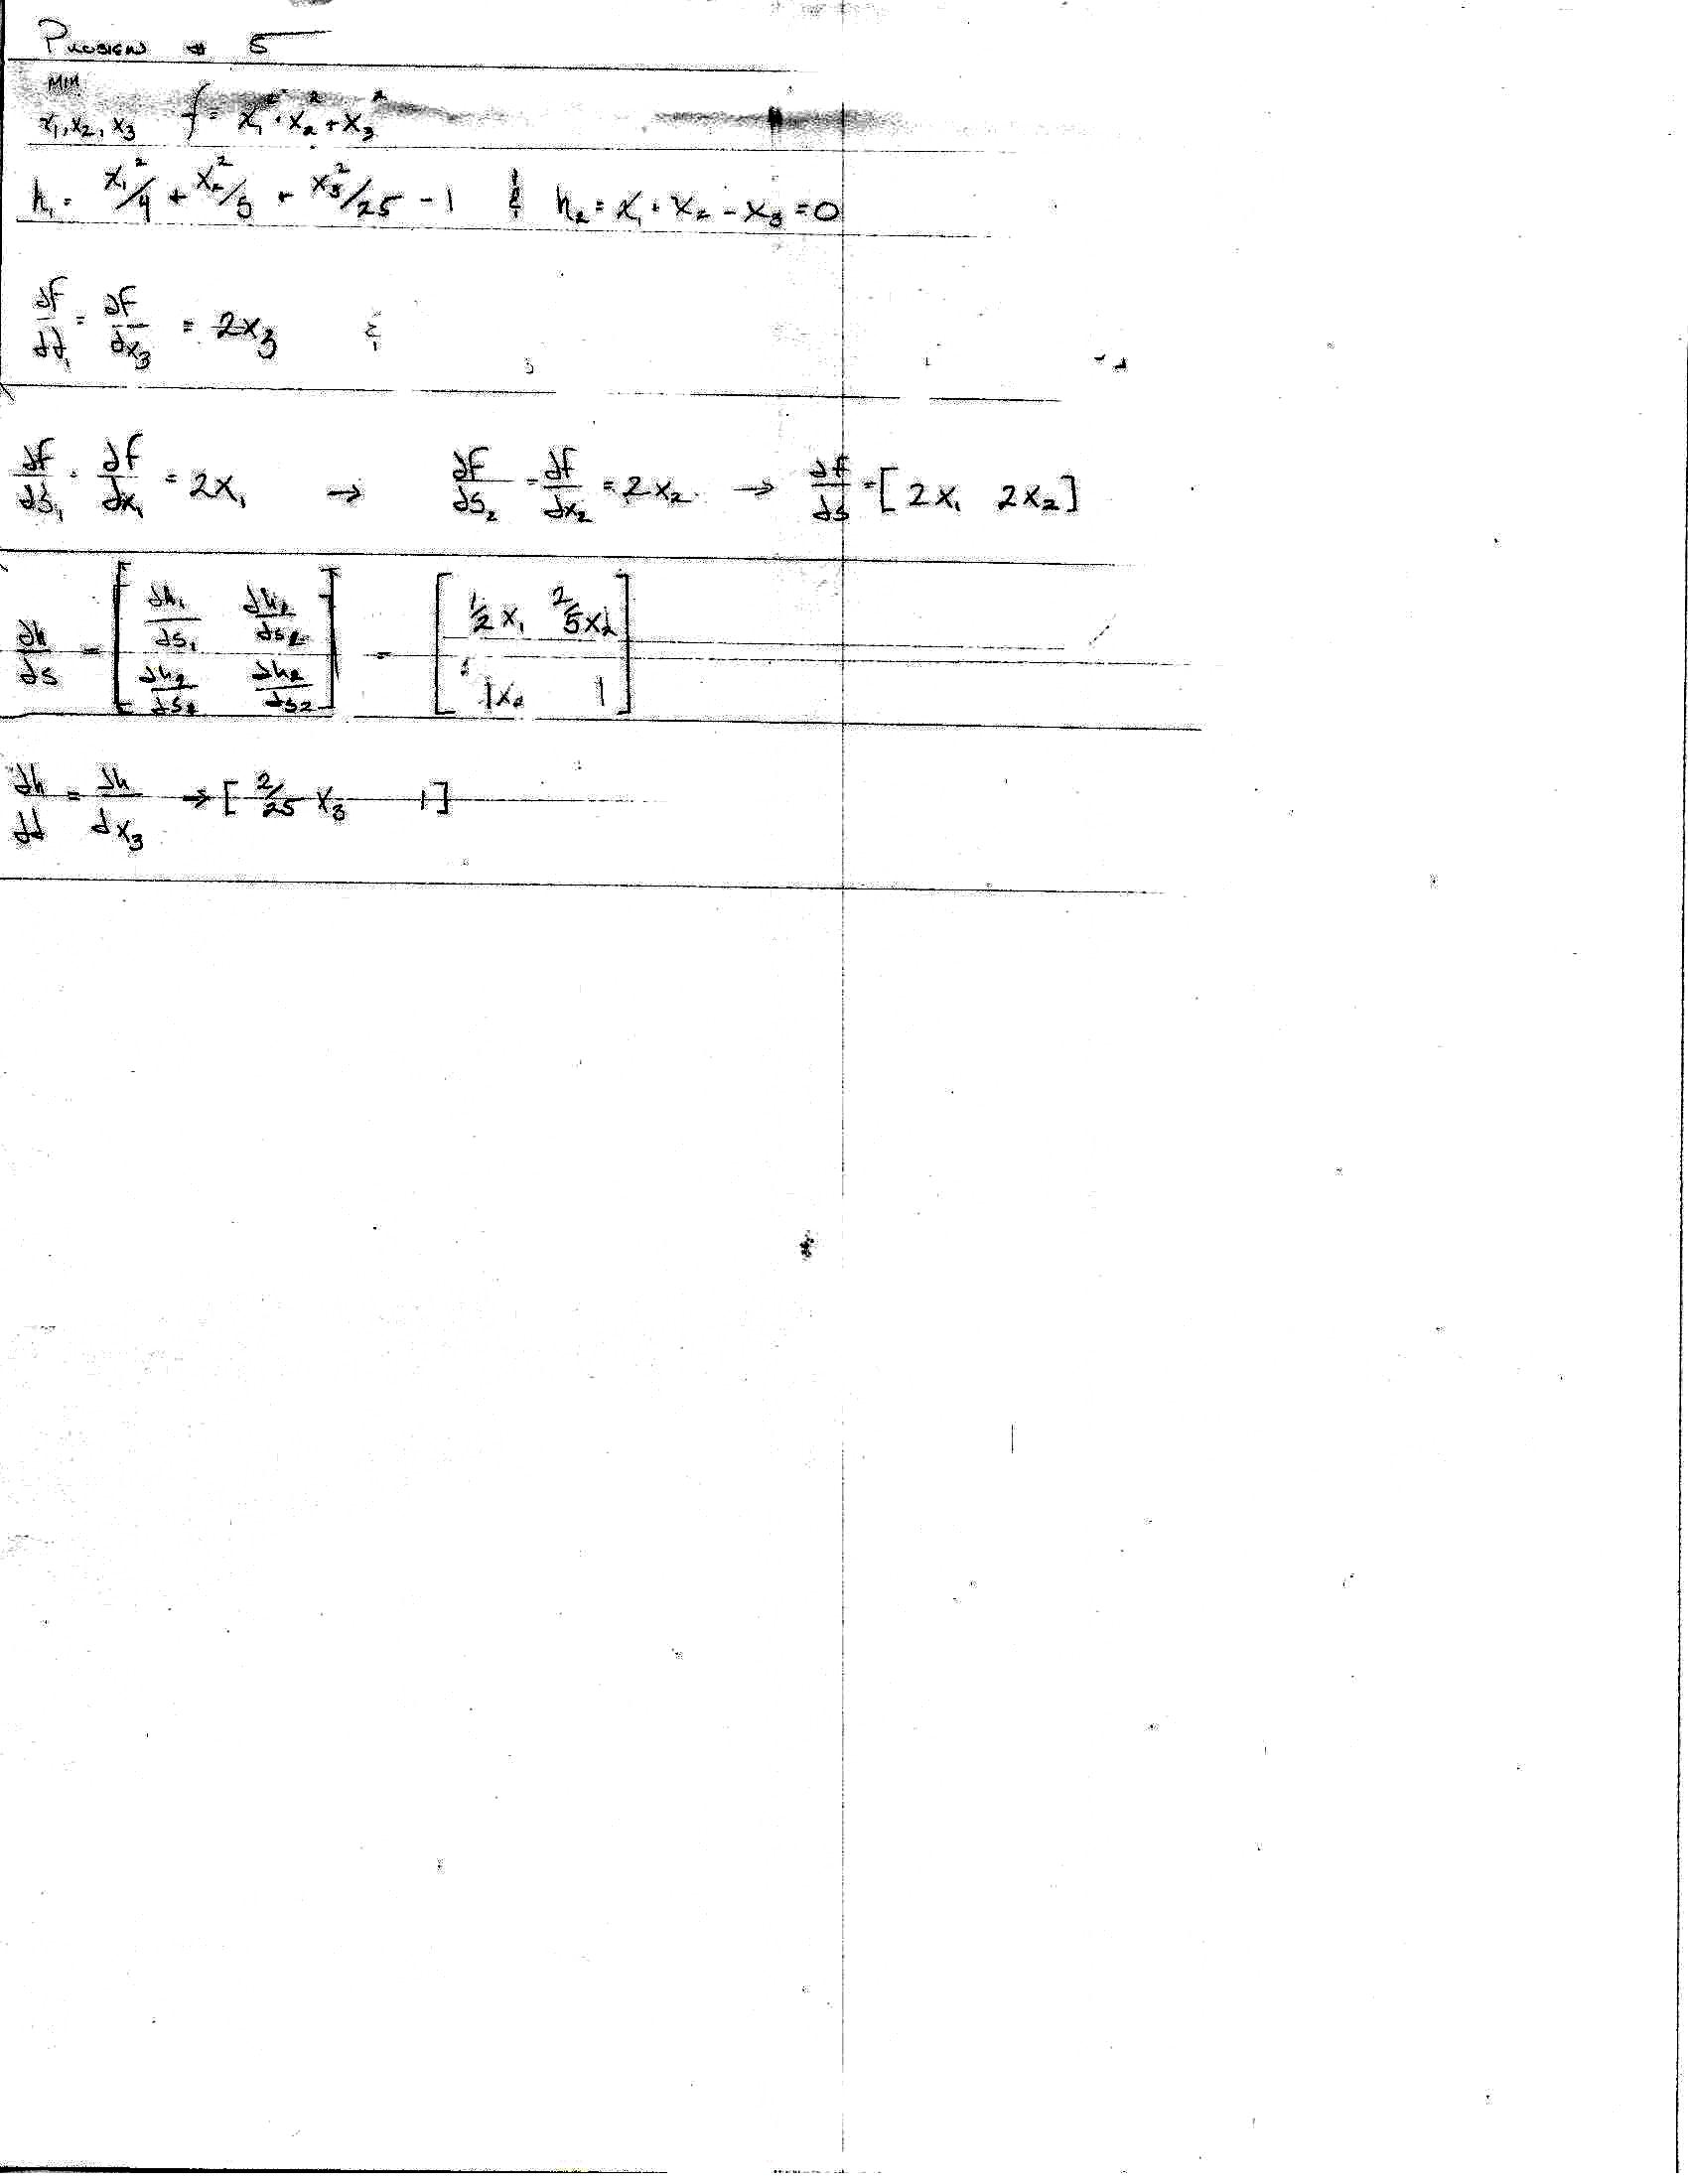 Problem # 5
MIN
x₁, x₂, x₃ f = x₁² + x₂² + x₃²
h₁ = x₁²/4 + x₂²/5 + x₃²/25 - 1 & h₂ = x₁ + x₂ - x₃ = 0
∂f/∂d₁ = ∂f/∂x₃ = 2x₃ &
∂f/∂s₁ = ∂f/∂x₁ = 2x₁ → ∂f/∂s₂ = ∂f/∂x₂ = 2x₂ → ∂f/∂s = [2x₁ 2x₂]
∂h/∂s = [∂h₁/∂s₁ ∂h₂/∂s₂ ; ∂h₂/∂s₂ ∂h₂/∂s₂] = [1/2 x₁ 2/5 x₂ ; 1x₂ 1]
∂h/∂d = ∂h/∂x₃ → [2/25 x₃ 1]